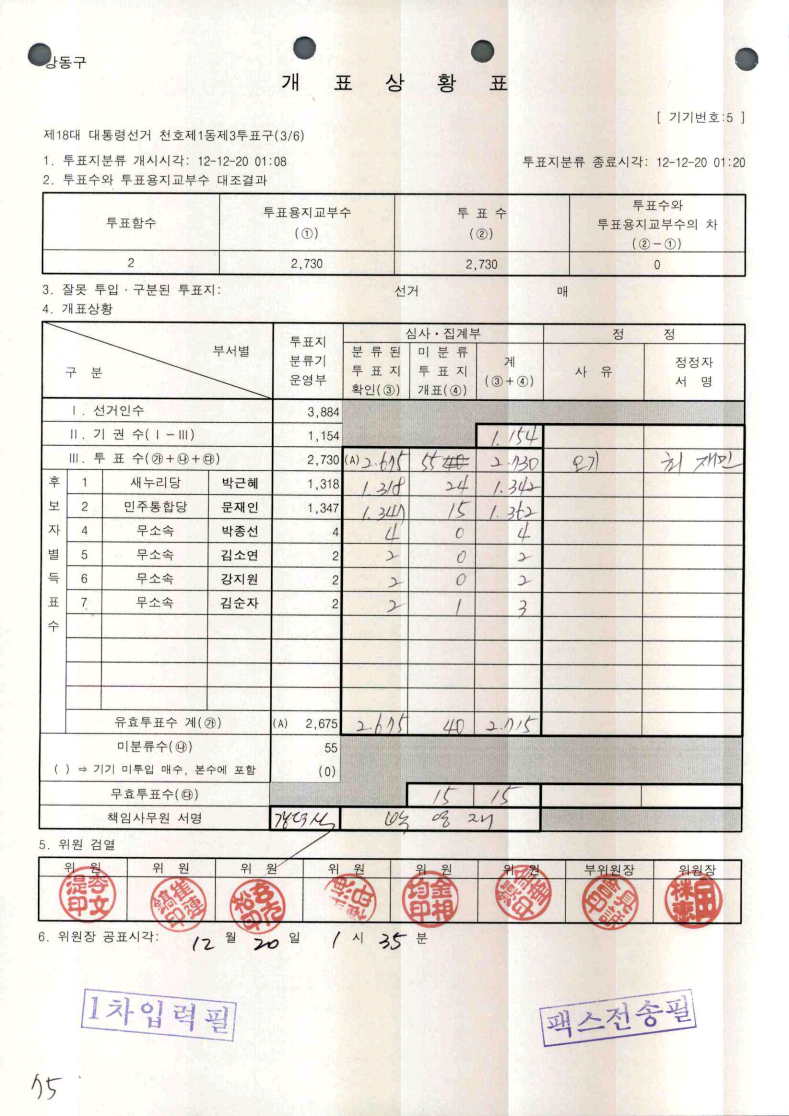 강동구
개 표 상 황 표
[ 기기번호:5 ]
제18대 대통령선거 천호제1동제3투표구(3/6)
1. 투표지분류 개시시각: 12-12-20 01:08 투표지분류 종료시각: 12-12-20 01:20
2. 투표수와 투표용지교부수 대조결과
투표함수 투표용지교부수 (①) 투 표 수 (②) 투표수와 투표용지교부수의 차 (②-①)
2 2,730 2,730 0
3. 잘못 투입·구분된 투표지: 선거 매
4. 개표상황
구 분 부서별 투표지 분류기 운영부 심사·집계부 정 정
분 류 된 투 표 지 확인(③) 미 분 류 투 표 지 개표(④) 계 (③+④) 사 유 정정자 서 명
Ⅰ. 선거인수 3,884
Ⅱ. 기 권 수(Ⅰ-Ⅲ) 1,154 1.154
Ⅲ. 투 표 수(㉮+㉯+㉰) 2,730 (A) 2.675 55 40 2.730 오기 최재민
후보자별득표수
1 새누리당 박근혜 1,318 1.318 24 1.342
2 민주통합당 문재인 1,347 1.347 15 1.362
4 무소속 박종선 4 4 0 4
5 무소속 김소연 2 2 0 2
6 무소속 강지원 2 2 0 2
7 무소속 김순자 2 2 1 3
유효투표수 계(㉮) (A) 2,675 2.675 40 2.715
미분류수(㉯) 55
( ) ⇒ 기기 미투입 매수, 본수에 포함 (0)
무효투표수(㉰) 15 15
책임사무원 서명
5. 위원 검열
위 원 위 원 위 원 위 원 위 원 위 원 부위원장 위원장
6. 위원장 공표시각: 12 월 20 일 1 시 35 분
1차입력필
팩스전송필
75